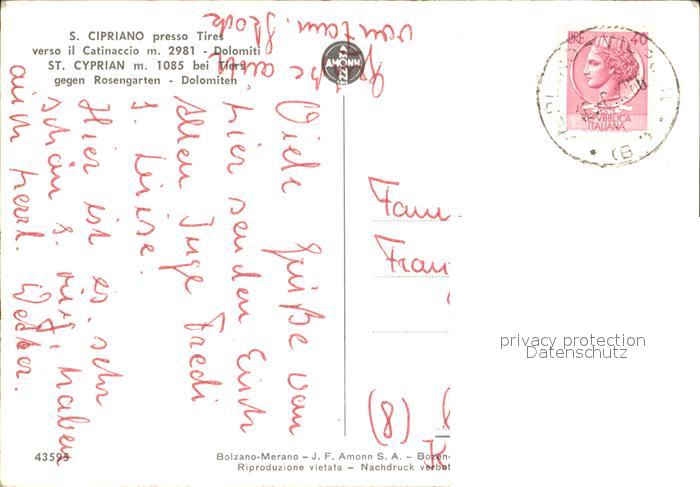 S. CIPRIANO presso Tires
verso il Catinaccio m. 2981 - Dolomiti
ST. CYPRIAN m. 1085 bei Tiers
gegen Rosengarten - Dolomiten
AMONN
LIRE 40
REPVBBLICA
ITALIANA
Viele Grüße von
hier senden Euch
allen Inge Fredi
u. Luise.
Hier ist es sehr
schön u. wir haben
auch herrl. Wetter.
Grüße auch
von Fam.
Fam.
(8)
privacy protection
Datenschutz
43595
Bolzano-Merano - J. F. Amonn S. A. - Bozen
Riproduzione vietata - Nachdruck verbot